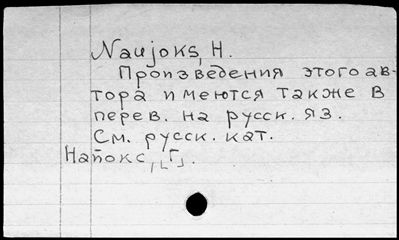 Naujoks, H.
Произведения этого ав-
тора имеются также в
перев. на русск. яз.
См. русск. кат.
Найокс, Г.